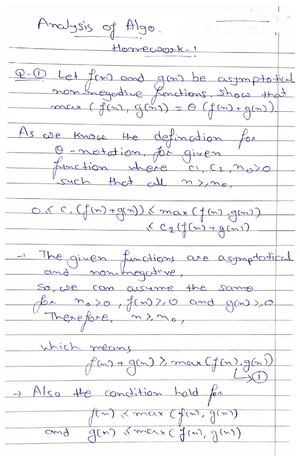 Analysis of Algo.
Homework-1
Q-① Let f(n) and g(n) be asymptotical
non-negative functions. Show that
max (f(n), g(n)) = Θ (f(n)+g(n)).
As we know the defination for
Θ-notation, for given
function where c₁, c₂, n₀>0
such that all n≥n₀,
0≤ c₁(f(n)+g(n)) ≤ max (f(n),g(n))
≤ c₂(f(n)+g(n))
→ The given functions are asymptotical
and non-negative,
So, we can assume the same
for n₀>0, f(n)≥0 and g(n)≥0
Therefore, n≥n₀,
which means
f(n)+g(n) ≥ max(f(n),g(n))
↳①
→ Also the condition hold for
f(n) ≤ max (f(n), g(n))
and g(n) ≤ max (f(n), g(n))